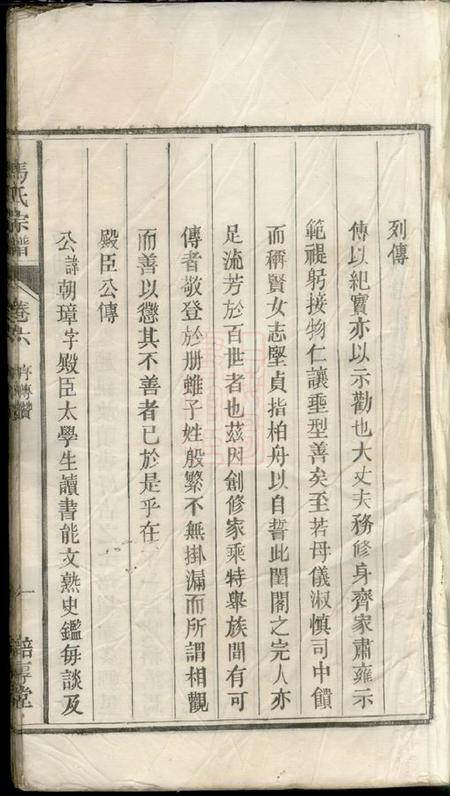 列傳
傳以紀實亦以示勸也大丈夫務修身齊家肅雍示
範禔躬接物仁讓垂型善矣至若母儀淑慎司中饋
而稱賢女志堅貞指柏舟以自誓此閨閣之完人亦
足流芳於百世者也茲因創修家乘特舉族間有可
傳者敬登於册雖子姓殷繁不無掛漏而所謂相觀
而善以懲其不善者已於是乎在
殿臣公傳
公諱朝璋字殿臣太學生讀書能文熟史鑑每談及
馬氏宗譜
卷六
序傳贊
一